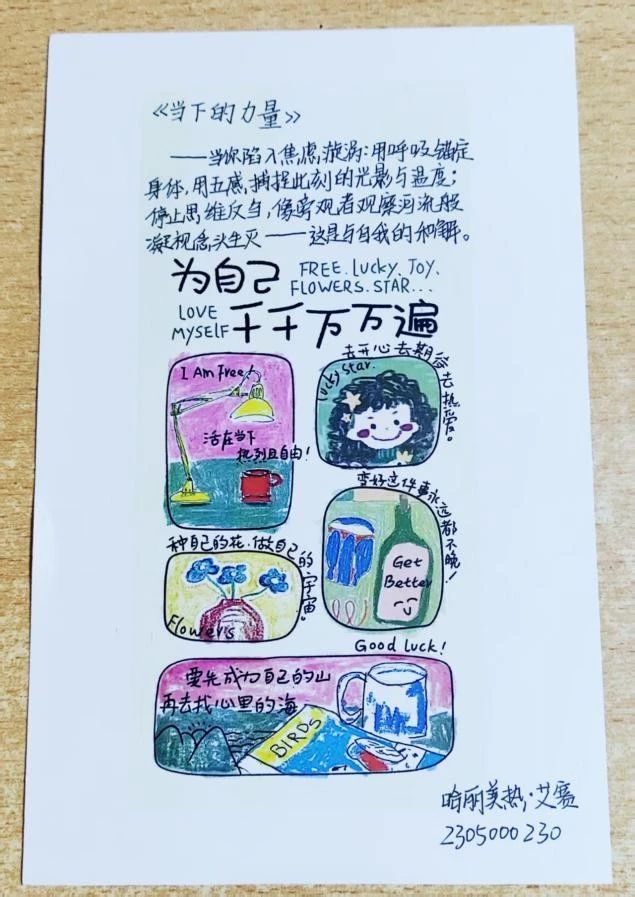 《当下的力量》
——当你陷入焦虑漩涡：用呼吸锚定
身体，用五感捕捉此刻的光影与温度；
停止思维反刍，像旁观者观察河流般
凝视念头生灭——这是与自我的和解。
为自己
FREE. Lucky. Joy.
FLOWERS. STAR...
LOVE
MYSELF
千千万万遍
I Am Free!
活在当下
热烈且自由！
去开心去期待去热爱。
lucky star.
变好这件事永远都不晚！
Get
Better
种自己的花，做自己的宇宙。
Flowers
Good Luck!
要先成为自己的山
再去找心里的海
BIRDS
哈丽美热·艾赛
2305000230